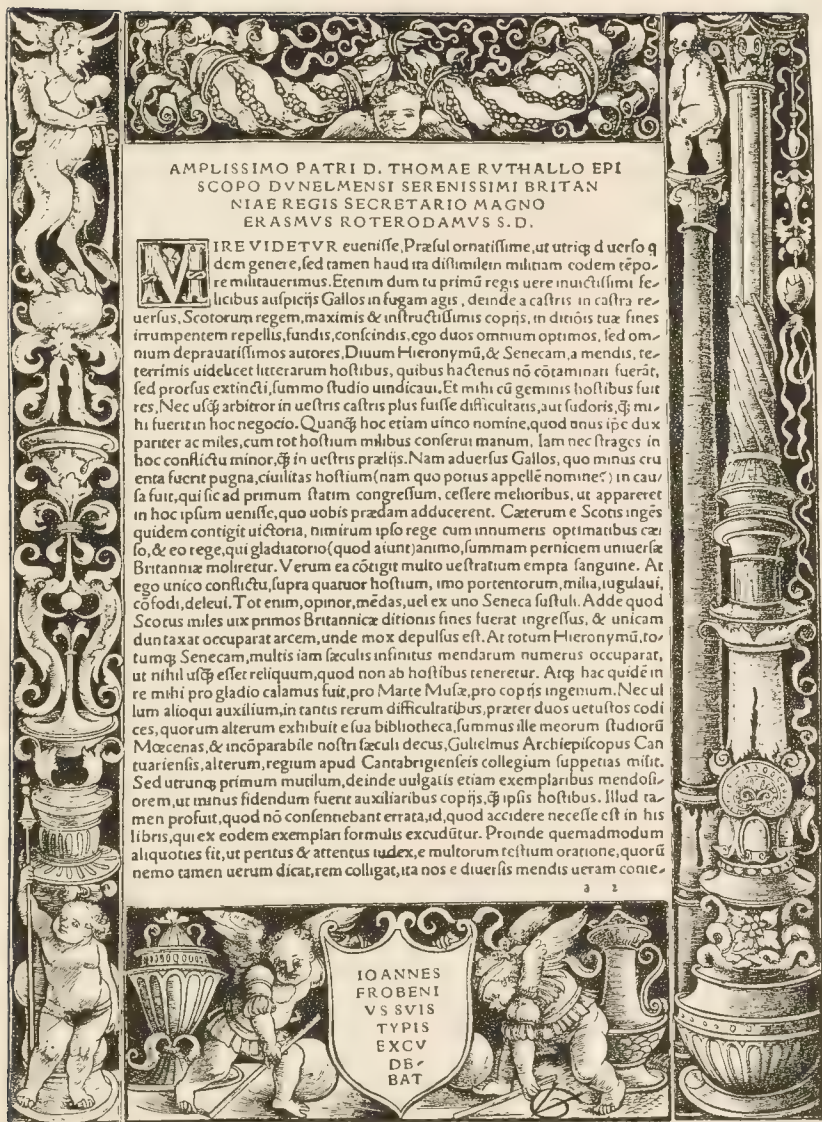 AMPLISSIMO PATRI D. THOMAE RVTHALLO EPI
SCOPO DVNELMENSI SERENISSIMI BRITAN
NIAE REGIS SECRETARIO MAGNO
ERASMVS ROTERODAMVS S.D.
MIRE VIDETVR eueniſſe, Præſul ornatiſſime, ut utriq; d uerſo q
dem genere, ſed tamen haud ita diſſimilem militiam eodem tẽpo-
re militauerimus. Etenim dum tu primũ regis uere inuictiſſimi fe-
licibus auſpicijs Gallos in fugam agis, deinde a caſtris in caſtra re-
uerſus, Scotorum regem, maximis & inſtructiſſimis copijs, in ditiõis tuæ fines
irrumpentem repellis, fundis, conſcindis, ego duos omnium optimos, ſed om-
nium deprauatiſſimos autores, Diuum Hieronymũ, & Senecam, a mendis, te-
terrimis uidelicet litterarum hoſtibus, quibus hactenus nõ cõtaminati fuerãt,
ſed prorſus extincti, ſummo ſtudio uindicaui. Et mihi cũ geminis hoſtibus fuit
res, Nec uſq̃ arbitror in ueſtris caſtris plus fuiſſe difficultatis, aut ſudoris, q̃ mi-
hi fuerit in hoc negocio. Quanq̃ hoc etiam uinco nomine, quod unus ip̃e dux
pariter ac miles, cum tot hoſtium milibus conſerui manum. Iam nec ſtrages in
hoc conflictu minor, q̃ in ueſtris prælijs. Nam aduerſus Gallos, quo minus cru
enta fuerit pugna, ciuilitas hoſtium (nam quo potius appellẽ nomine?) in cau/
ſa fuit, qui ſic ad primum ſtatim congreſſum, ceſſere melioribus, ut appareret
in hoc ipſum ueniſſe, quo uobis prædam adducerent. Cæterum e Scotis ingẽs
quidem contigit uictoria, nimirum ipſo rege cum innumeris optimatibus cæ/
ſo, & eo rege, qui gladiatorio (quod aiunt) animo, ſummam perniciem uniuerſæ
Britanniæ moliretur. Verum ea cõtigit multo ueſtratium empta ſanguine. At
ego unico conflictu, ſupra quatuor hoſtium, imo portentorum, milia, iugulaui,
cõfodi, deleui. Tot enim, opinor, mẽdas, uel ex uno Seneca ſuſtuli. Adde quod
Scotus miles uix primos Britannicæ ditionis fines fuerat ingreſſus, & unicam
duntaxat occuparat arcem, unde mox depulſus eſt. At totum Hieronymũ, to/
tumq; Senecam, multis iam ſæculis infinitus mendarum numerus occuparat,
ut nihil uſq̃ eſſet reliquum, quod non ab hoſtibus teneretur. Atq; hac quidẽ in
re mihi pro gladio calamus fuit, pro Marte Muſæ, pro copijs ingenium. Nec ul
lum alioqui auxilium, in tantis rerum difficultatibus, præter duos uetuſtos codi
ces, quorum alterum exhibuit e ſua bibliotheca, ſummus ille meorum ſtudiorũ
Mœcenas, & incõparabile noſtri ſæculi decus, Gulielmus Archiepiſcopus Can
tuarienſis, alterum, regium apud Cantabrigienſeis collegium ſuppetias miſit.
Sed utrunq; primum mutilum, deinde uulgatis etiam exemplaribus mendoſi-
orem, ut minus fidendum fuerit auxiliaribus copijs, q̃ ipſis hoſtibus. Illud ta-
men profuit, quod nõ conſentiebant errata, id, quod accidere neceſſe eſt in his
libris, qui ex eodem exemplari formulis excudũtur. Proinde quemadmodum
aliquoties fit, ut peritus & attentus iudex, e multorum teſtium oratione, quorũ
nemo tamen uerum dicat, rem colligat, ita nos e diuerſis mendis ueram conie-
a 2
IOANNES
FROBENI
VS SVIS
TYPIS
EXCV
DE-
BAT